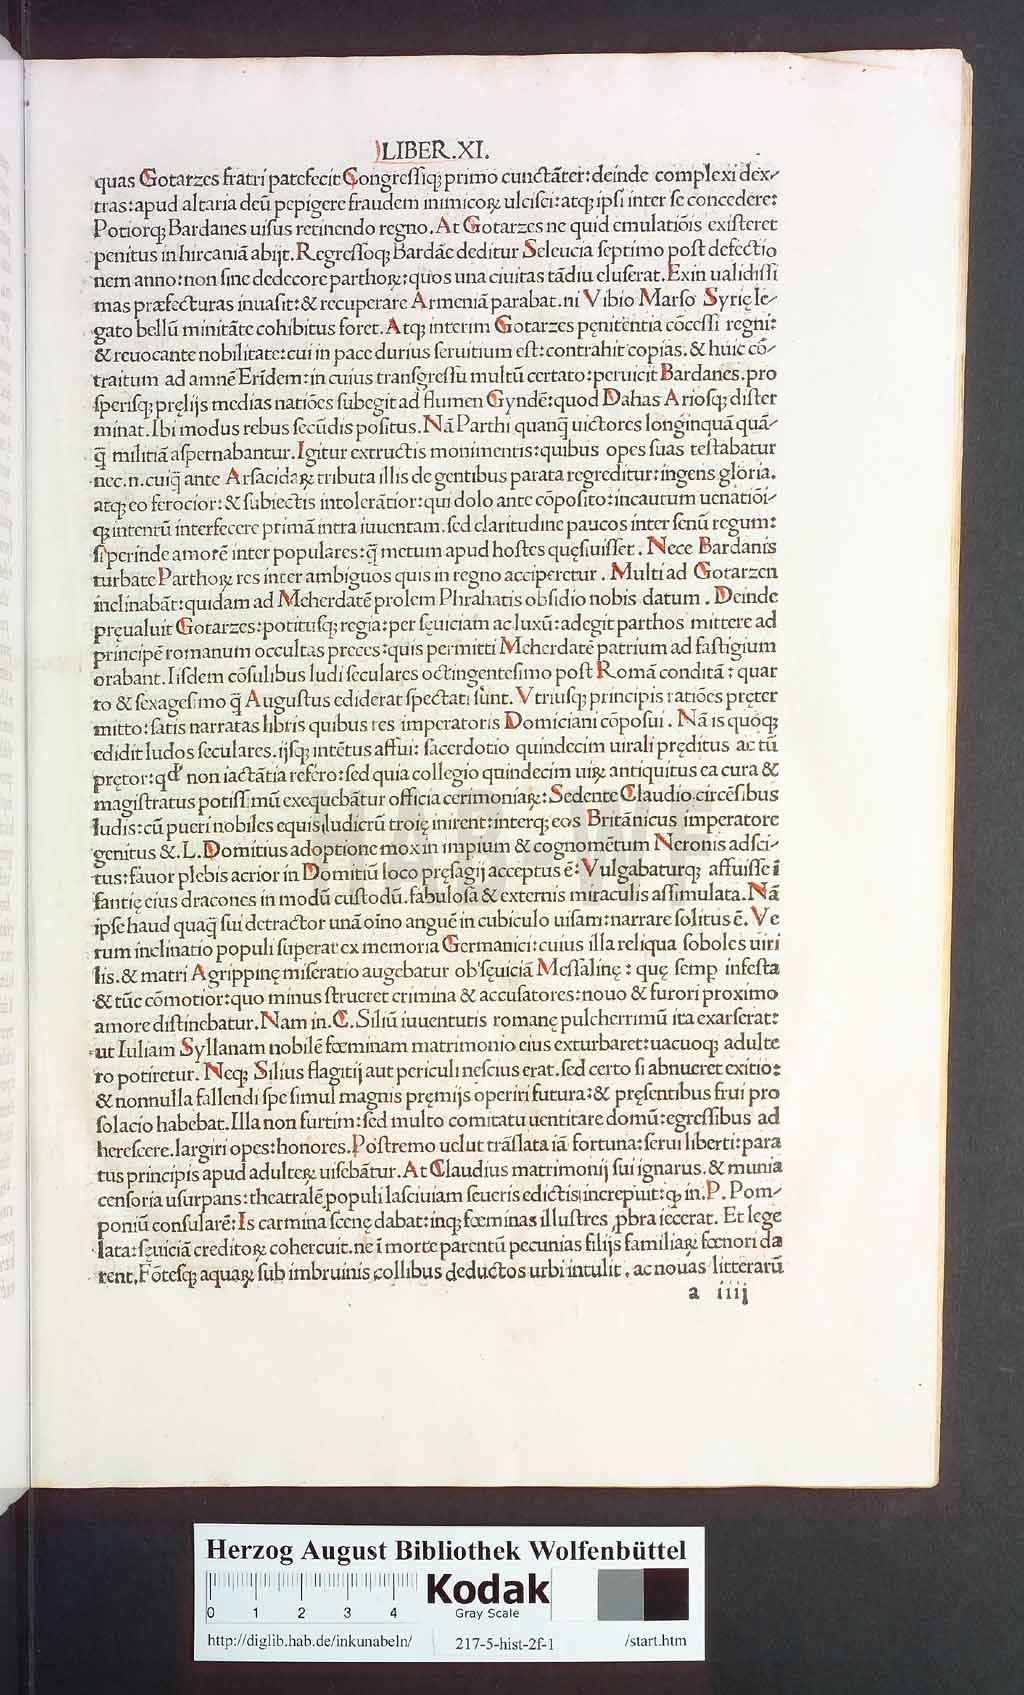 LIBER.XI.
quas Gotarzes fratri patefecit Congressiqȝ primo cunctãter: deinde complexi dex-
tras: apud altaria deũ pepigere fraudem inimicoꝝ ulcisci: atqȝ ipsi inter se concedere:
Potiorqȝ Bardanes uisus retinendo regno. At Gotarzes ne quid emulatiõis existeret
penitus in hircaniã abijt. Regressoqȝ Bardãe deditur Seleucia septimo post defectio
nem anno: non sine dedecore parthoꝝ: quos una ciuitas tãdiu eluserat. Exin ualidissi
mas præfecturas inuasit: & recuperare Armeniã parabat. ni Vibio Marso Syrię le-
gato bellũ minitãte cohibitus foret. Atqȝ interim Gotarzes pęnitentia cõcessi regni:
& reuocante nobilitate: cui in pace durius seruitium est: contrahit copias. & huic cõ-
traitum ad amnẽ Erĩdem: in cuius transgressu multũ certato: peruicit Bardanes. pro
sperisqȝ pręlijs medias natiões subegit ad flumen Gyndẽ: quod Dahas Ariosqȝ dister
minat. Ibi modus rebus secũdis positus. Nã Parthi quanq̃ uictores longinquã quã-
q̃ militiã aspernabantur. Igitur extructis monimentis: quibus opes suas testabatur
nec. n. cuiq̃ ante Arsacidaꝝ tributa illis de gentibus parata regreditur: ingens gloria.
atqȝ eo ferocior: & subiectis intolerãtior: qui dolo ante cõposito: incautum uenatiõi-
qȝ intentũ interfecere primã intra iuuentam. sed claritudine paucos inter senũ regum:
si perinde amorẽ inter populares: q̃ metum apud hostes quęsiuisset. Nece Bardanis
turbate Parthoꝝ res inter ambiguos quis in regno acciperetur. Multi ad Gotarzen
inclinabãt: quidam ad Meherdatẽ prolem Phrahatis obsidio nobis datum. Deinde
pręualuit Gotarzes: potitusqȝ regia: per sęuiciam ac luxũ: adegit parthos mittere ad
principẽ romanum occultas preces: quis permitti Meherdatẽ patrium ad fastigium
orabant. Iisdem cõsulibus ludi seculares octingentesimo post Romã conditã: quar
to & sexagesimo q̃ Augustus ediderat spectati sunt. Vtriusqȝ principis ratiões pręter
mitto: satis narratas libris quibus res imperatoris Domiciani cõposui. Nã is quoqȝ
edidit ludos seculares. ijsqȝ intẽtus affui: sacerdotio quindecim uirali pręditus ac tũ
prętor: qđ non iactãtia refero: sed quia collegio quindecim uiꝝ antiquitus ea cura &
magistratus potissimũ exequebãtur officia cerimoniaꝝ: Sedente Claudio circẽsibus
ludis: cũ pueri nobiles equis ludicrũ troię inirent: interqȝ eos Britãnicus imperatore
genitus &. L. Domitius adoptione mox in impium & cognomẽtum Neronis adsci-
tus: fauor plebis acrior in Domitiũ loco pręsagij acceptus ẽ: Vulgabaturqȝ affuisse ĩ
fantię eius dracones in modũ custodũ. fabulosa & externis miraculis assimulata. Nã
ipse haud quaq̃ sui detractor unã oĩno anguẽ in cubiculo uisam: narrare solitus ẽ. Ve
rum inclinatio populi superat ex memoria Germanici: cuius illa reliqua soboles uiri
lis. & matri Agrippinę miseratio augebatur ob sęuiciã Messalinę: quę semp infesta
& tũc cõmotior: quo minus strueret crimina & accusatores: nouo & furori proximo
amore distinebatur. Nam in. C. Siliũ iuuentutis romanę pulcherrimũ ita exarserat:
ut Iuliam Syllanam nobilẽ fœminam matrimonio eius exturbaret: uacuoqȝ adulte
ro potiretur. Neqȝ Silius flagitij aut periculi nescius erat. sed certo si abnueret exitio:
& nonnulla fallendi spe simul magnis pręmijs operiri futura: & pręsentibus frui pro
solacio habebat. Illa non furtim: sed multo comitatu uentitare domũ: egressibus ad
herescere. largiri opes: honores. Postremo uelut trãslata iã fortuna: serui liberti: para
tus principis apud adulteꝝ uisebãtur. At Claudius matrimonij sui ignarus. & munia
censoria usurpans: theatralẽ populi lasciuiam seueris edictis increpuit: qꝫ in. P. Pom-
poniũ consularẽ: Is carmina scenę dabat: inqȝ fœminas illustres ꝓbra iecerat. Et lege
lata: sęuiciã creditoꝝ cohercuit. ne ĩ morte parentũ pecunias filijs familiaꝝ fœnori da
rent. Fõtesqȝ aquaꝝ sub imbruinis collibus deductos urbi intulit. ac nouas litterarũ
a iiij
Herzog August Bibliothek Wolfenbüttel
0 1 2 3 4
Kodak
Gray Scale
http://diglib.hab.de/inkunabeln/ 217-5-hist-2f-1 /start.htm